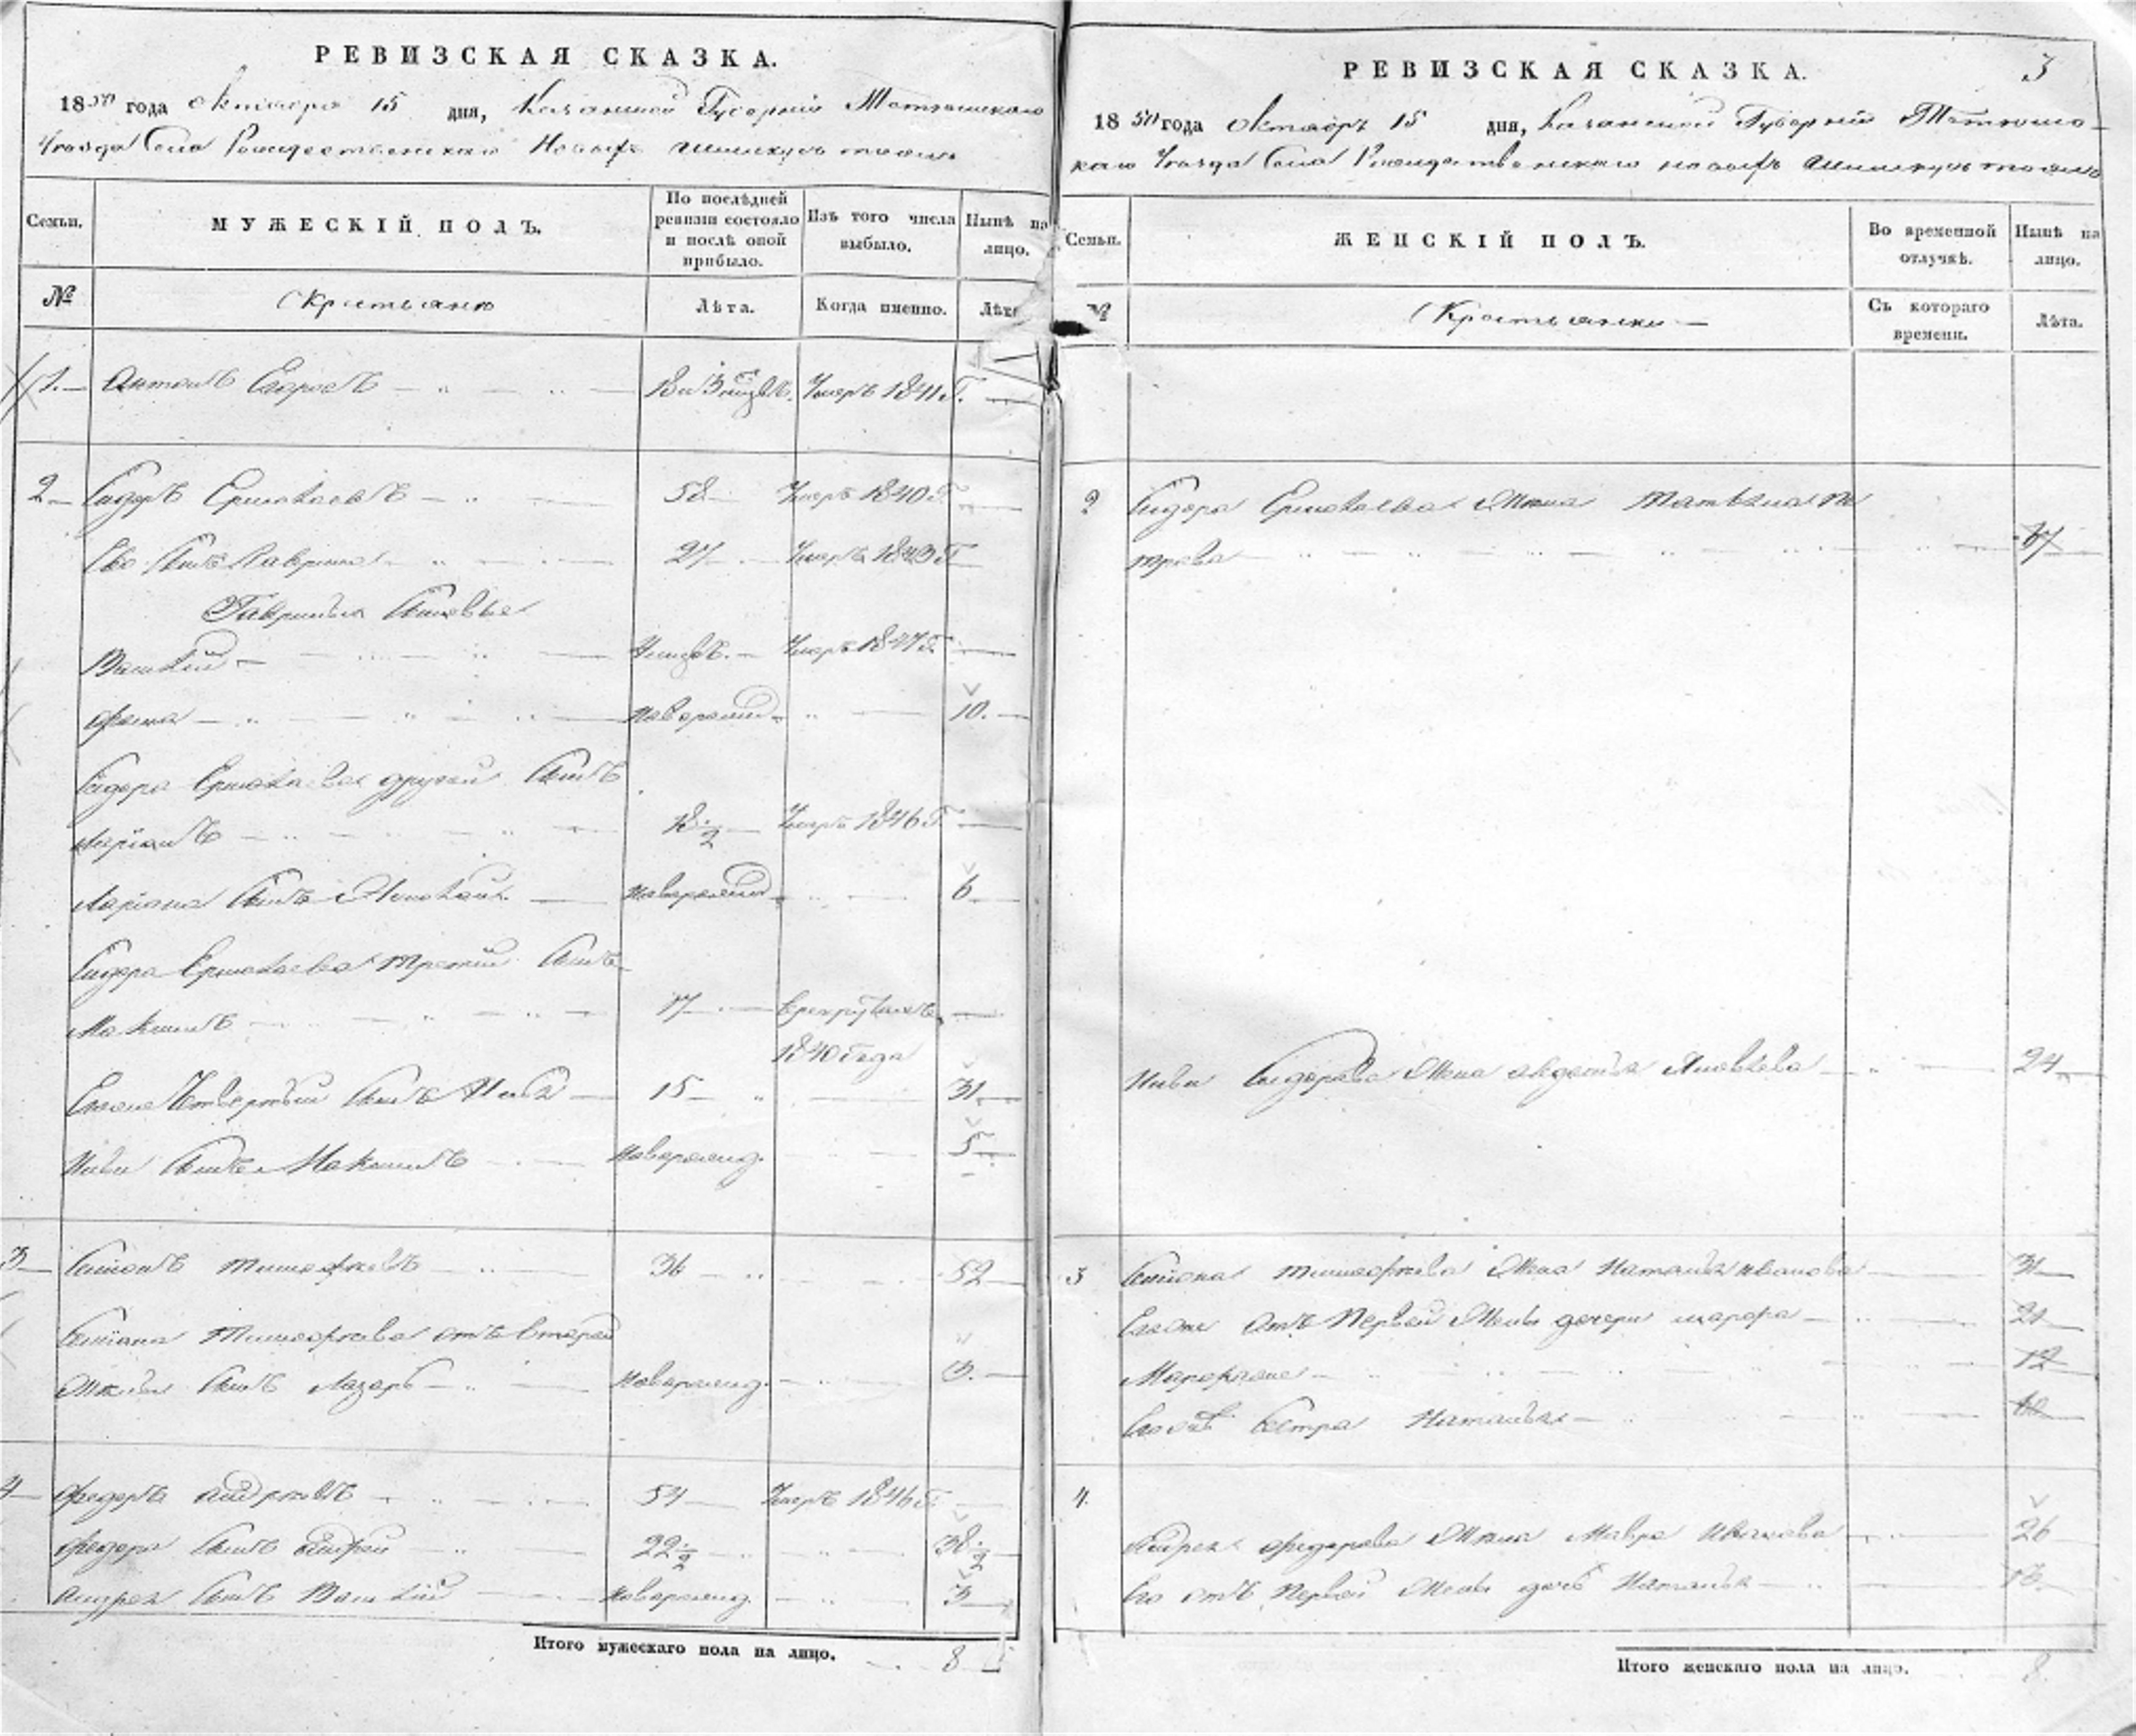 РЕВИЗСКАЯ СКАЗКА.
1850 года октября 15 дня, Казанской Губернiи Тетюшскаго
Уезда Села Рождественскаго Новыхъ
Семьи.
МУЖЕСКІЙ ПОЛЪ.
По послѣдней ревизіи состояло и послѣ оной прибыло.
Изъ того числа выбыло.
Нынѣ на лицо.
№
Крестьяне
Лѣта.
Когда именно.
Лѣта
1. Антонъ Егоровъ Умеръ 1841 Г.
2 Сидоръ Ермолаевъ 58 Умеръ 1840 Г
Его Сынъ Гаврила 27 Умеръ 1843 Г
Гаврилы Сыновья
Василий Умеръ 1847 Г.
Фома новорожд 10.
Сидора Ермолаева другой Сынъ
Ларіонъ 18 ½ Умеръ 1846 Г
Ларіона Сынъ новорожд 6
Сидора Ермолаева третий Сынъ
Максимъ 17 в рекрутахъ
1840 года
Четвертый Сынъ 15 31
Сынъ Максимъ новорожд. 5
3 Семіонъ Тимофѣевъ 36 52
Семіона Тимофеева отъ второй
Жены Сынъ Лазарь новорожд. 3.
4 Федоръ Андреевъ 54 Умеръ 1846 Г.
Федора Сынъ Андрей 22 ½ 38 ½
Андрея Сынъ Василий новорожд. 3
Итого мужескаго пола на лицо. 8
РЕВИЗСКАЯ СКАЗКА.
3
1850 года октября 15 дня, Казанской Губерніи Тетюшс-
каго Уезда Села Рождественскаго новыхъ
Семьи.
ЖЕНСКІЙ ПОЛЪ.
Во временной отлучкѣ.
Нынѣ на лицо.
№
Крестьянки
Съ котораго времени.
Лѣта.
2 Сидора Ермолаева Жена Татьяна Пе
трова 67
Сидорова Жена Авдотья Яковлева 24
3 Семіона Тимофеева Жена Наталья Иванова 31
Его отъ Первой Жены дочери 21
Марфа 12
Сестра Наталья
4.
Андрея Федорова Жена Мавра Иванова 26
Его отъ Первой Жены дочь Наталья 13.
Итого женскаго пола на лицо. 8.